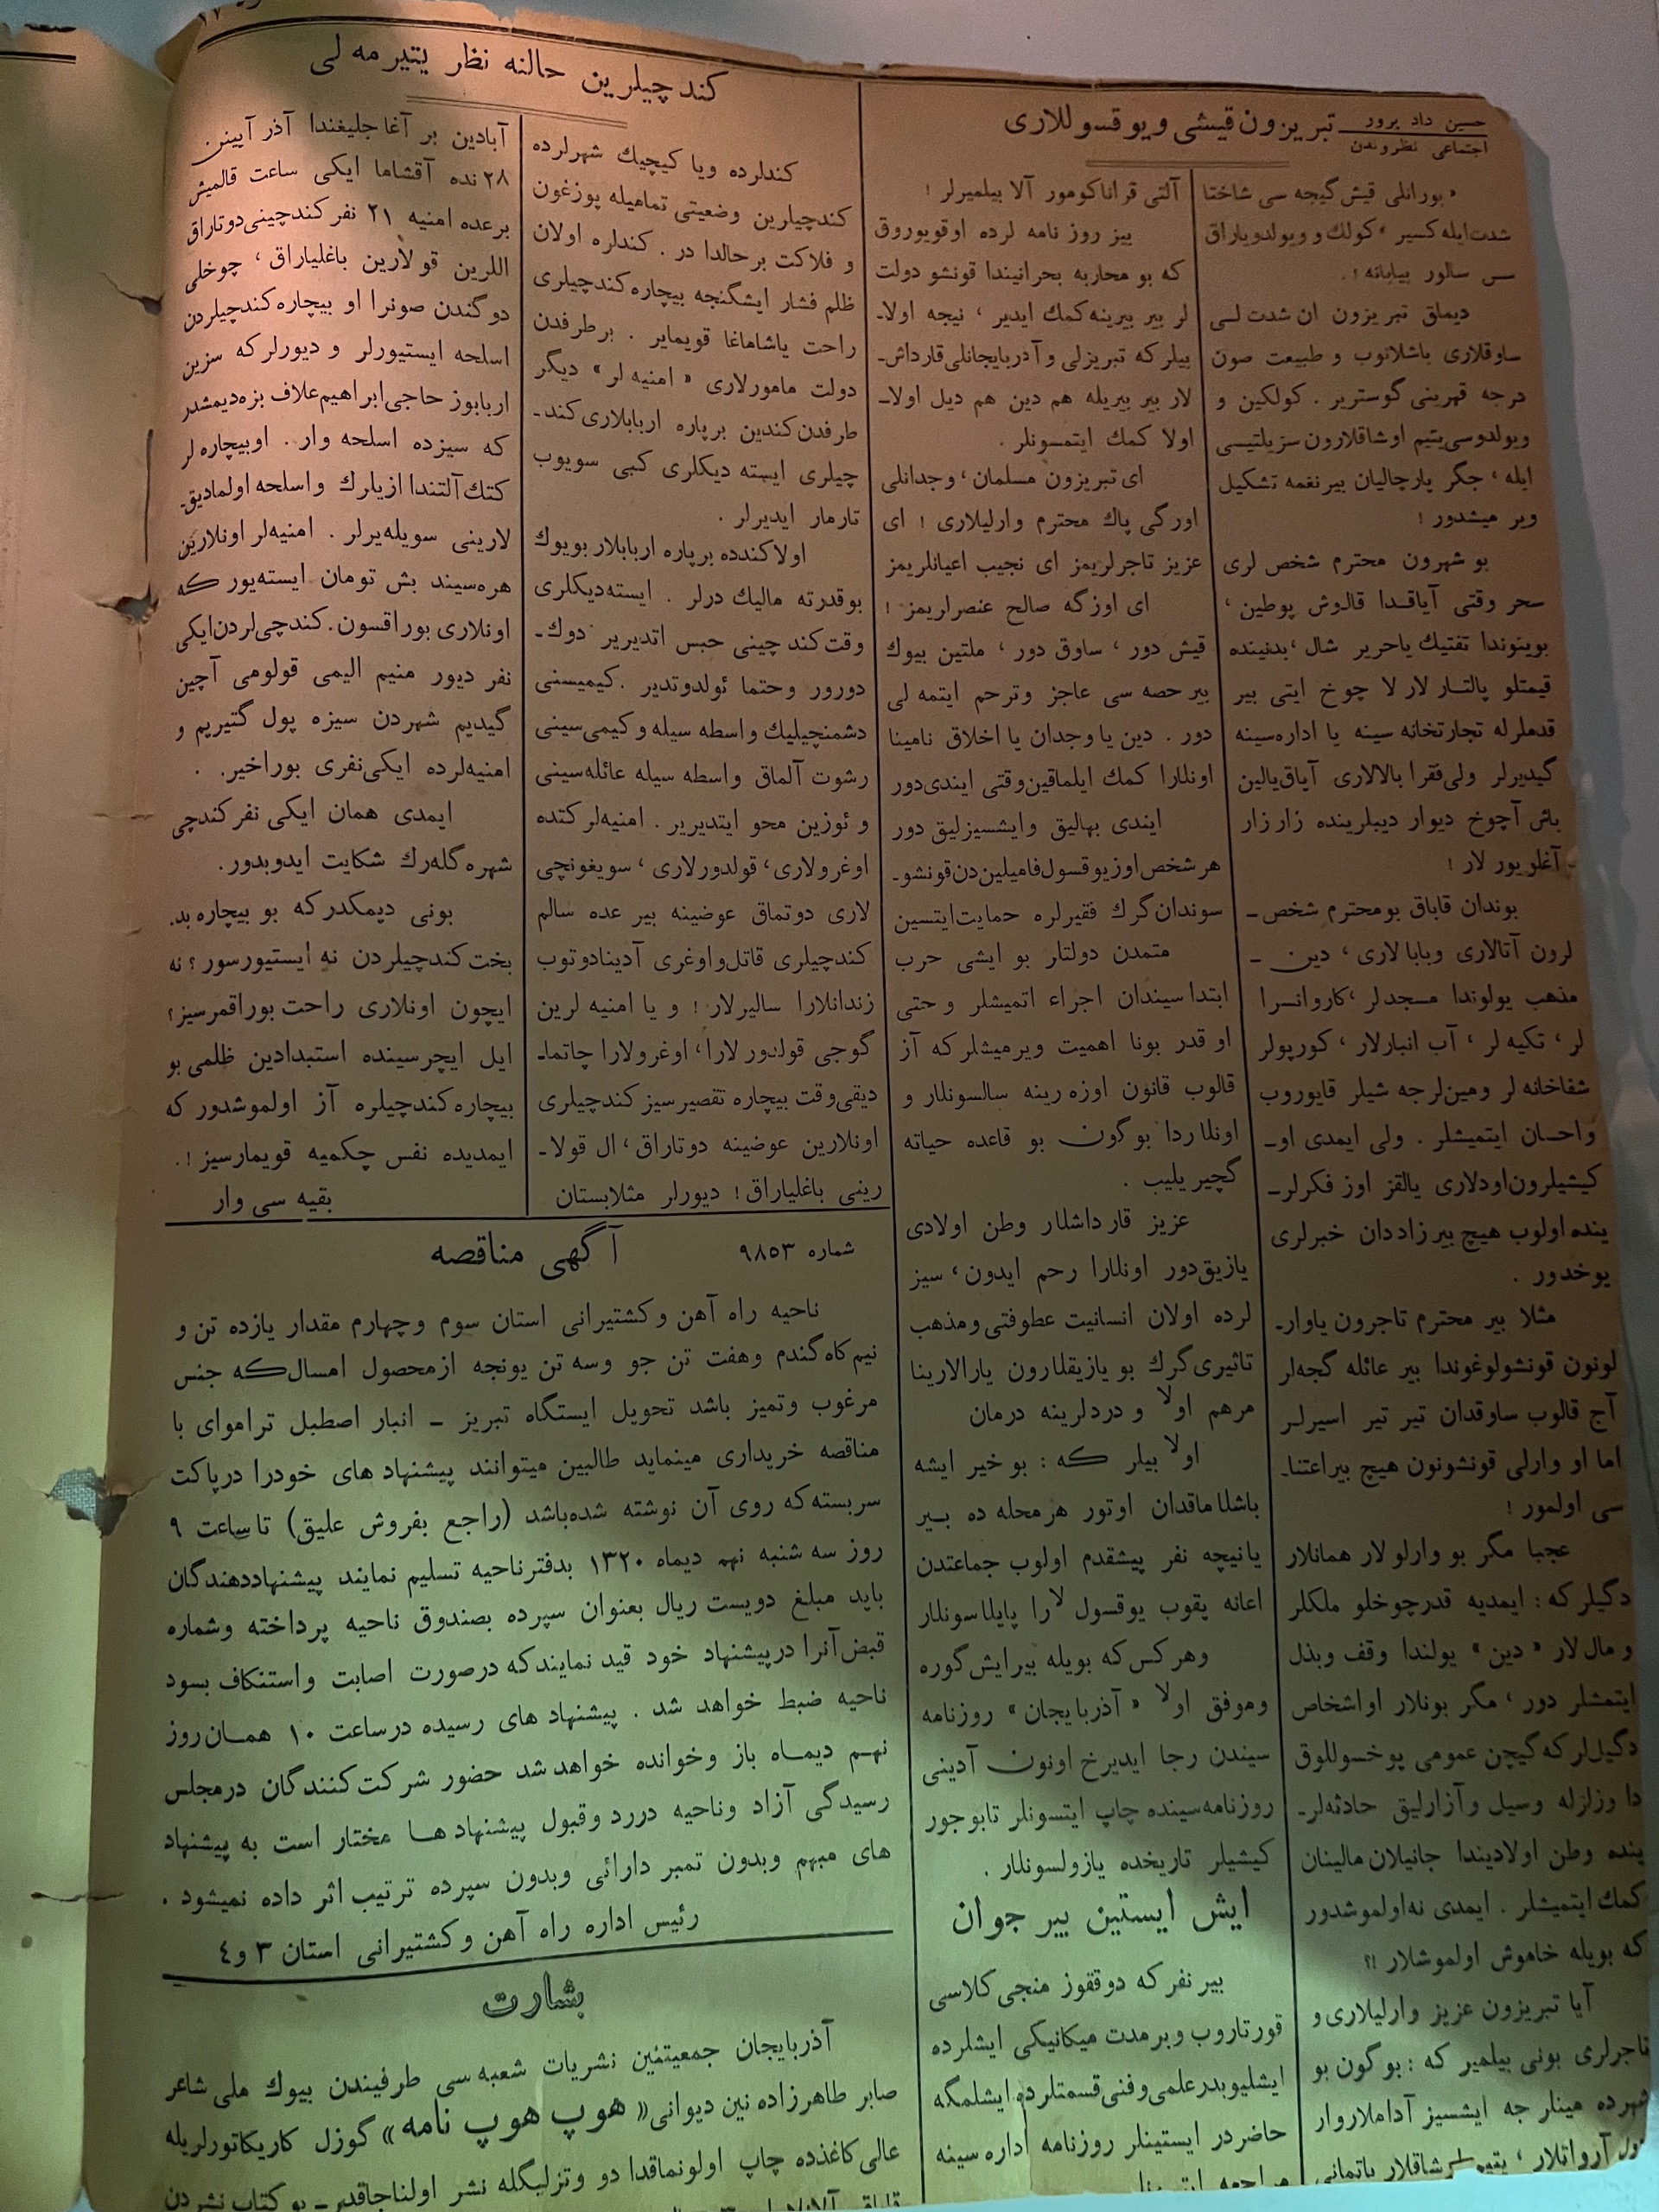 حسین داد پرور
اجتماعی نظروندن
تبریزون قیشی و یوقسوللاری
« بورانلی قیش گیجه سی شاختا
شدت ایله کسیر « کولك و ویولدویاراق
سس سالور بیابانه !.
دیماق تبریزون ان شدت لی
ساوقلاری باشلانوب و طبیعت صون
درجه قهرینی گوستریر . کولکین و
ویولدوسی یتیم اوشاقلارون سزیلتیسی
ایله ، جگر پارچالیان بیر نغمه تشکیل
ویر میشدور !
بو شهرون محترم شخص لری
سحر وقتی آیاقدا قالوش پوطین ،
بوینوندا تفتیك یاحریر شال ، بدنینده
قیمتلو پالتار لار لا چوخ ایتی بیر
قدملرله تجارتخانه سینه یا اداره سینه
گیدیرلر ولی فقرا بالالاری آیاق یالین
باش آچوخ دیوار دیبلرینده زار زار
آغلویور لار !
بوندان قاباق بو محترم شخص ـ
لرون آتالاری وبابا لاری ، دین ـ
مذهب یولوندا مسجدلر ، کاروانسرا
لر ، تکیه لر ، آب انبارلار ، کورپولر
شفاخانه لر ومین لرجه شیلر قایوروب
واحسان ایتمیشلر . ولی ایمدی او ـ
کیشیلرون اودلاری یالقز اوز فکرلر ـ
ینده اولوب هیچ بیر زاددان خبرلری
یوخدور .
مثلا بیر محترم تاجرون یاوار ـ
لونون قونشولوغوندا بیر عائله گجه لر
آج قالوب ساوقدان تیر تیر اسیرلر
اما او وارلی قونشونون هیچ بیراعتنا ـ
سی اولمور !
عجبا مگر بو وارلو لار همانلار
دگیلر که : ایمدیه قدرچوخلو ملکلر
و مال لار « دین » یولندا وقف وبذل
ایتمشلر دور ، مگر بونلار او اشخاص
دگیل لر که گیچن عمومی یوخسوللوق
دا وزلزله وسیل وآزارلیق حادثه لر ـ
ینده وطن اولادیندا جانیلان مالینان
کمك ایتمیشلر . ایمدی نه اولموشدور
که بویله خاموش اولموشلار !؟
آیا تبریزون عزیز وارلیلاری و
تاجرلری بونی بیلمیر که : بو گون بو
شهرده مینلر جه ایشسیز آداملاروار
دول آرواتلار ، یتیم اوشاقلار یاتمانی
آلتی قرانا کومور آلا بیلمیرلر !
بیز روز نامه لرده اوقویوروق
که بو محاربه بحرانیندا قونشو دولت
لر بیر بیرینه کمك ایدیر ، نیجه اولا ـ
بیلر که تبریزلی و آذربایجانلی قارداش ـ
لار بیر بیریله هم دین هم دیل اولا ـ
اولا کمك ایتمسونلر .
ای تبریزون مسلمان ، وجدانلی
اورگی پاك محترم وارلیلاری ! ای
عزیز تاجرلریمز ای نجیب اعیانلریمز
ای اوزگه صالح عنصرلریمز !
قیش دور ، ساوق دور ، ملتین بیوك
بیر حصه سی عاجز وترحم ایتمه لی
دور . دین یا وجدان یا اخلاق نامینا
اونلارا کمك ایلماقین وقتی ایندی دور
ایندی بهالیق وایشسیزلیق دور
هرشخص اوزیوقسول فامیلین دن قونشو ـ
سوندان گرك فقیرلره حمایت ایتسین
متمدن دولتلر بو ایشی حرب
ابتدا سیندان اجراء اتمیشلر وحتی
او قدر بونا اهمیت ویرمیشلر که آز
قالوب قانون اوزه رینه سالسونلار و
اونلاردا بو گون بو قاعده حیاته
گچیریلیب .
عزیز قارداشلار وطن اولادی
یازیق دور اونلارا رحم ایدون ، سیز
لرده اولان انسانیت عطوفتی ومذهب
تاثیری گرك بو یازیقلارون یارالارینا
مرهم اولا و دردلرینه درمان
اولا بیلر که : بو خیر ایشه
باشلاماقدان اوتور هر محله ده بیر
یانیچه نفر پیشقدم اولوب جماعتدن
اعانه یقوب یوقسول لارا پایلاسونلار
وهر کس که بویله بیرایش گوره
وموفق اولا « آذربایجان » روزنامه
سیندن رجا ایدیرخ اونون آدینی
روزنامه سینده چاپ ایتسونلر تابوجور
کیشیلر تاریخده یازولسونلار .
ایش ایستین بیر جوان
بیر نفر که دوققوز منجی کلاسی
قورتاروب وبرمدت میکانیکی ایشلرده
ایشلیوبدرعلمی وفنی قسمتلرده ایشلمگه
حاضردر ایستینلر روزنامه اداره سینه
کندچیلرین حالنه نظر یتیرمه لی
کندلرده ویا کیچیك شهرلرده
کندچیلرین وضعیتی تمامیله پوزغون
و فلاکت برحالدا در . کندلره اولان
ظلم فشار ایشگنجه بیچاره کندچیلری
راحت یاشاماغا قویمایر . برطرفدن
دولت مامورلاری « امنیه لر » دیگر
طرفدن کندین برپاره اربابلاری کند ـ
چیلری ایسته دیکلری کبی سویوب
تارمار ایدیرلر .
اولا کندده برپاره اربابلار بویوك
بوقدرته مالیك درلر . ایسته دیکلری
وقت کندچینی حبس اتدیریر دوك ـ
دورور وحتما ئولدوتدیر . کیمیسنی
دشمنچیلیك واسطه سیله و کیمی سینی
رشوت آلماق واسطه سیله عائله سینی
و ئوزین محو ایتدیریر . امنیه لر کتده
اوغرولاری ، قولدورلاری ، سویغونچی
لاری دوتماق عوضینه بیر عده سالم
کندچیلری قاتل و اوغری آدینادوتوب
زندانلارا سالیرلار ! و یا امنیه لرین
گوجی قولدورلارا ، اوغرولارا چاتما ـ
دیقی وقت بیچاره تقصیرسیز کندچیلری
اونلارین عوضینه دوتاراق ، ال قولا ـ
رینی باغلیاراق ! دیورلر مثلابستان
آبادین بر آغاجلیغندا آذر آیینن
۲۸ نده آقشاما ایکی ساعت قالمیش
برعده امنیه ۲۱ نفر کندچینی دوتاراق
اللرین قولارین باغلیاراق ، چوخلی
دوگندن صونرا او بیچاره کندچیلردن
اسلحه ایستیورلر و دیورلر که سزین
اربابوز حاجی ابراهیم علاف بزه دیمشدر
که سیزده اسلحه وار . اوبیچاره لر
کتك آلتندا ازیلرك واسلحه اولمادیق ـ
لارینی سویله یرلر . امنیه لر اونلارین
هره سیند بش تومان ایسته یور که
اونلاری بوراقسون . کندچی لردن ایکی
نفر دیور منیم الیمی قولومی آچین
گیدیم شهردن سیزه پول گتیریم و
امنیه لرده ایکی نفری بوراخیر .
ایمدی همان ایکی نفر کندچی
شهره گله رك شکایت ایدوبدور.
بونی دیمکدر که بو بیچاره بد
بخت کندچیلردن نه ایستیورسور ؟ نه
ایچون اونلاری راحت بوراقمرسیز ؟
ایل ایچرسینده استبدادین ظلمی بو
بیچاره کندچیلره آز اولموشدور که
ایمدیده نفس چکمیه قویمارسیز !.
بقیه سی وار
شماره ۹۸۵۳
آگهی مناقصه
ناحیه راه آهن و کشتیرانی استان سوم وچهارم مقدار یازده تن و
نیم کاه گندم وهفت تن جو وسه تن یونجه ازمحصول امسال که جنس
مرغوب وتمیز باشد تحویل ایستگاه تبریز ـ انبار اصطبل تراموای با
مناقصه خریداری مینماید طالبین میتوانند پیشنهاد های خودرا درپاکت
سربسته که روی آن نوشته شده باشد (راجع بفروش علیق) تا ساعت ۹
روز سه شنبه نهم دیماه ۱۳۲۰ بدفترناحیه تسلیم نمایند پیشنهاددهندگان
باید مبلغ دویست ریال بعنوان سپرده بصندوق ناحیه پرداخته وشماره
قبض آنرا درپیشنهاد خود قید نمایند که درصورت اصابت واستنکاف بسود
ناحیه ضبط خواهد شد . پیشنهاد های رسیده درساعت ۱۰ همان روز
نهم دیماه باز وخوانده خواهد شد حضور شرکت کنندگان درمجلس
رسیدگی آزاد وناحیه دررد وقبول پیشنهاد ها مختار است به پیشنهاد
های مبهم وبدون تمبر دارائی وبدون سپرده ترتیب اثر داده نمیشود .
رئیس اداره راه آهن و کشتیرانی استان ۳ و ٤
بشارت
آذربایجان جمعیتنین نشریات شعبه سی طرفیندن بیوك ملی شاعر
صابر طاهرزاده نین دیوانی « هوپ هوپ نامه » گوزل کاریکاتورلریله
عالی کاغذده چاپ اولونماقدا دو وتزلیگله نشر اولناجاقدر ـ بو کتاب نشردن